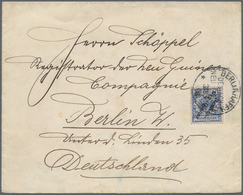 Herrn Schöppel
Registrator der Neu Guinea
Compagnie
Berlin W.
Unter d. Linden 35
Deutschland